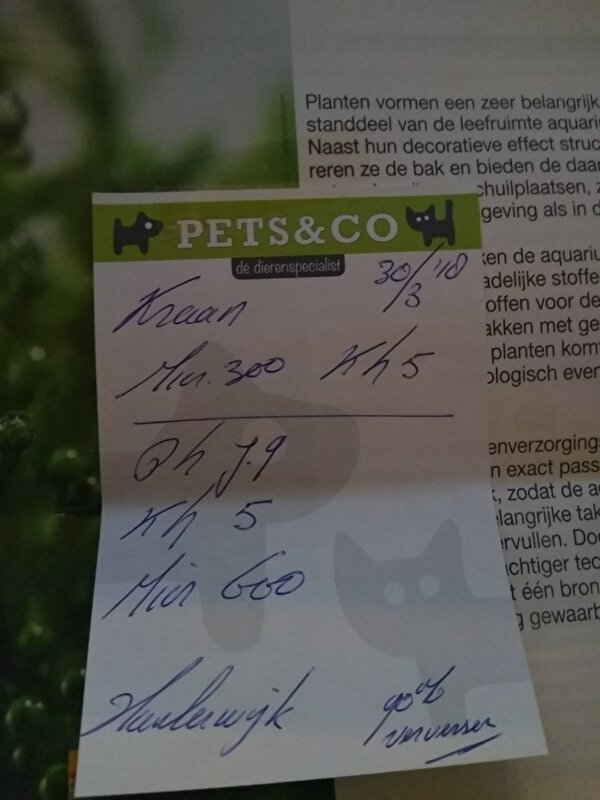 Planten vormen een zeer belangrijk
standdeel van de leefruimte aquariu
Naast hun decoratieve effect struc
reren ze de bak en bieden de daar
chuilplaatsen, z
geving als in d
PETS&CO
dé dierenspecialist
30/3 '18
Kraan
Min. 300 Kh 5
Ph 7.9
Kh 5
Min 600
Harderwijk
90% verversen
ken de aquariu
adelijke stoffe
offen voor de
akken met ge
planten kom
ologisch even
enverzorging
n exact pass
k, zodat de a
elangrijke tak
ervullen. Do
chtiger tec
t één bron
g gewaarb